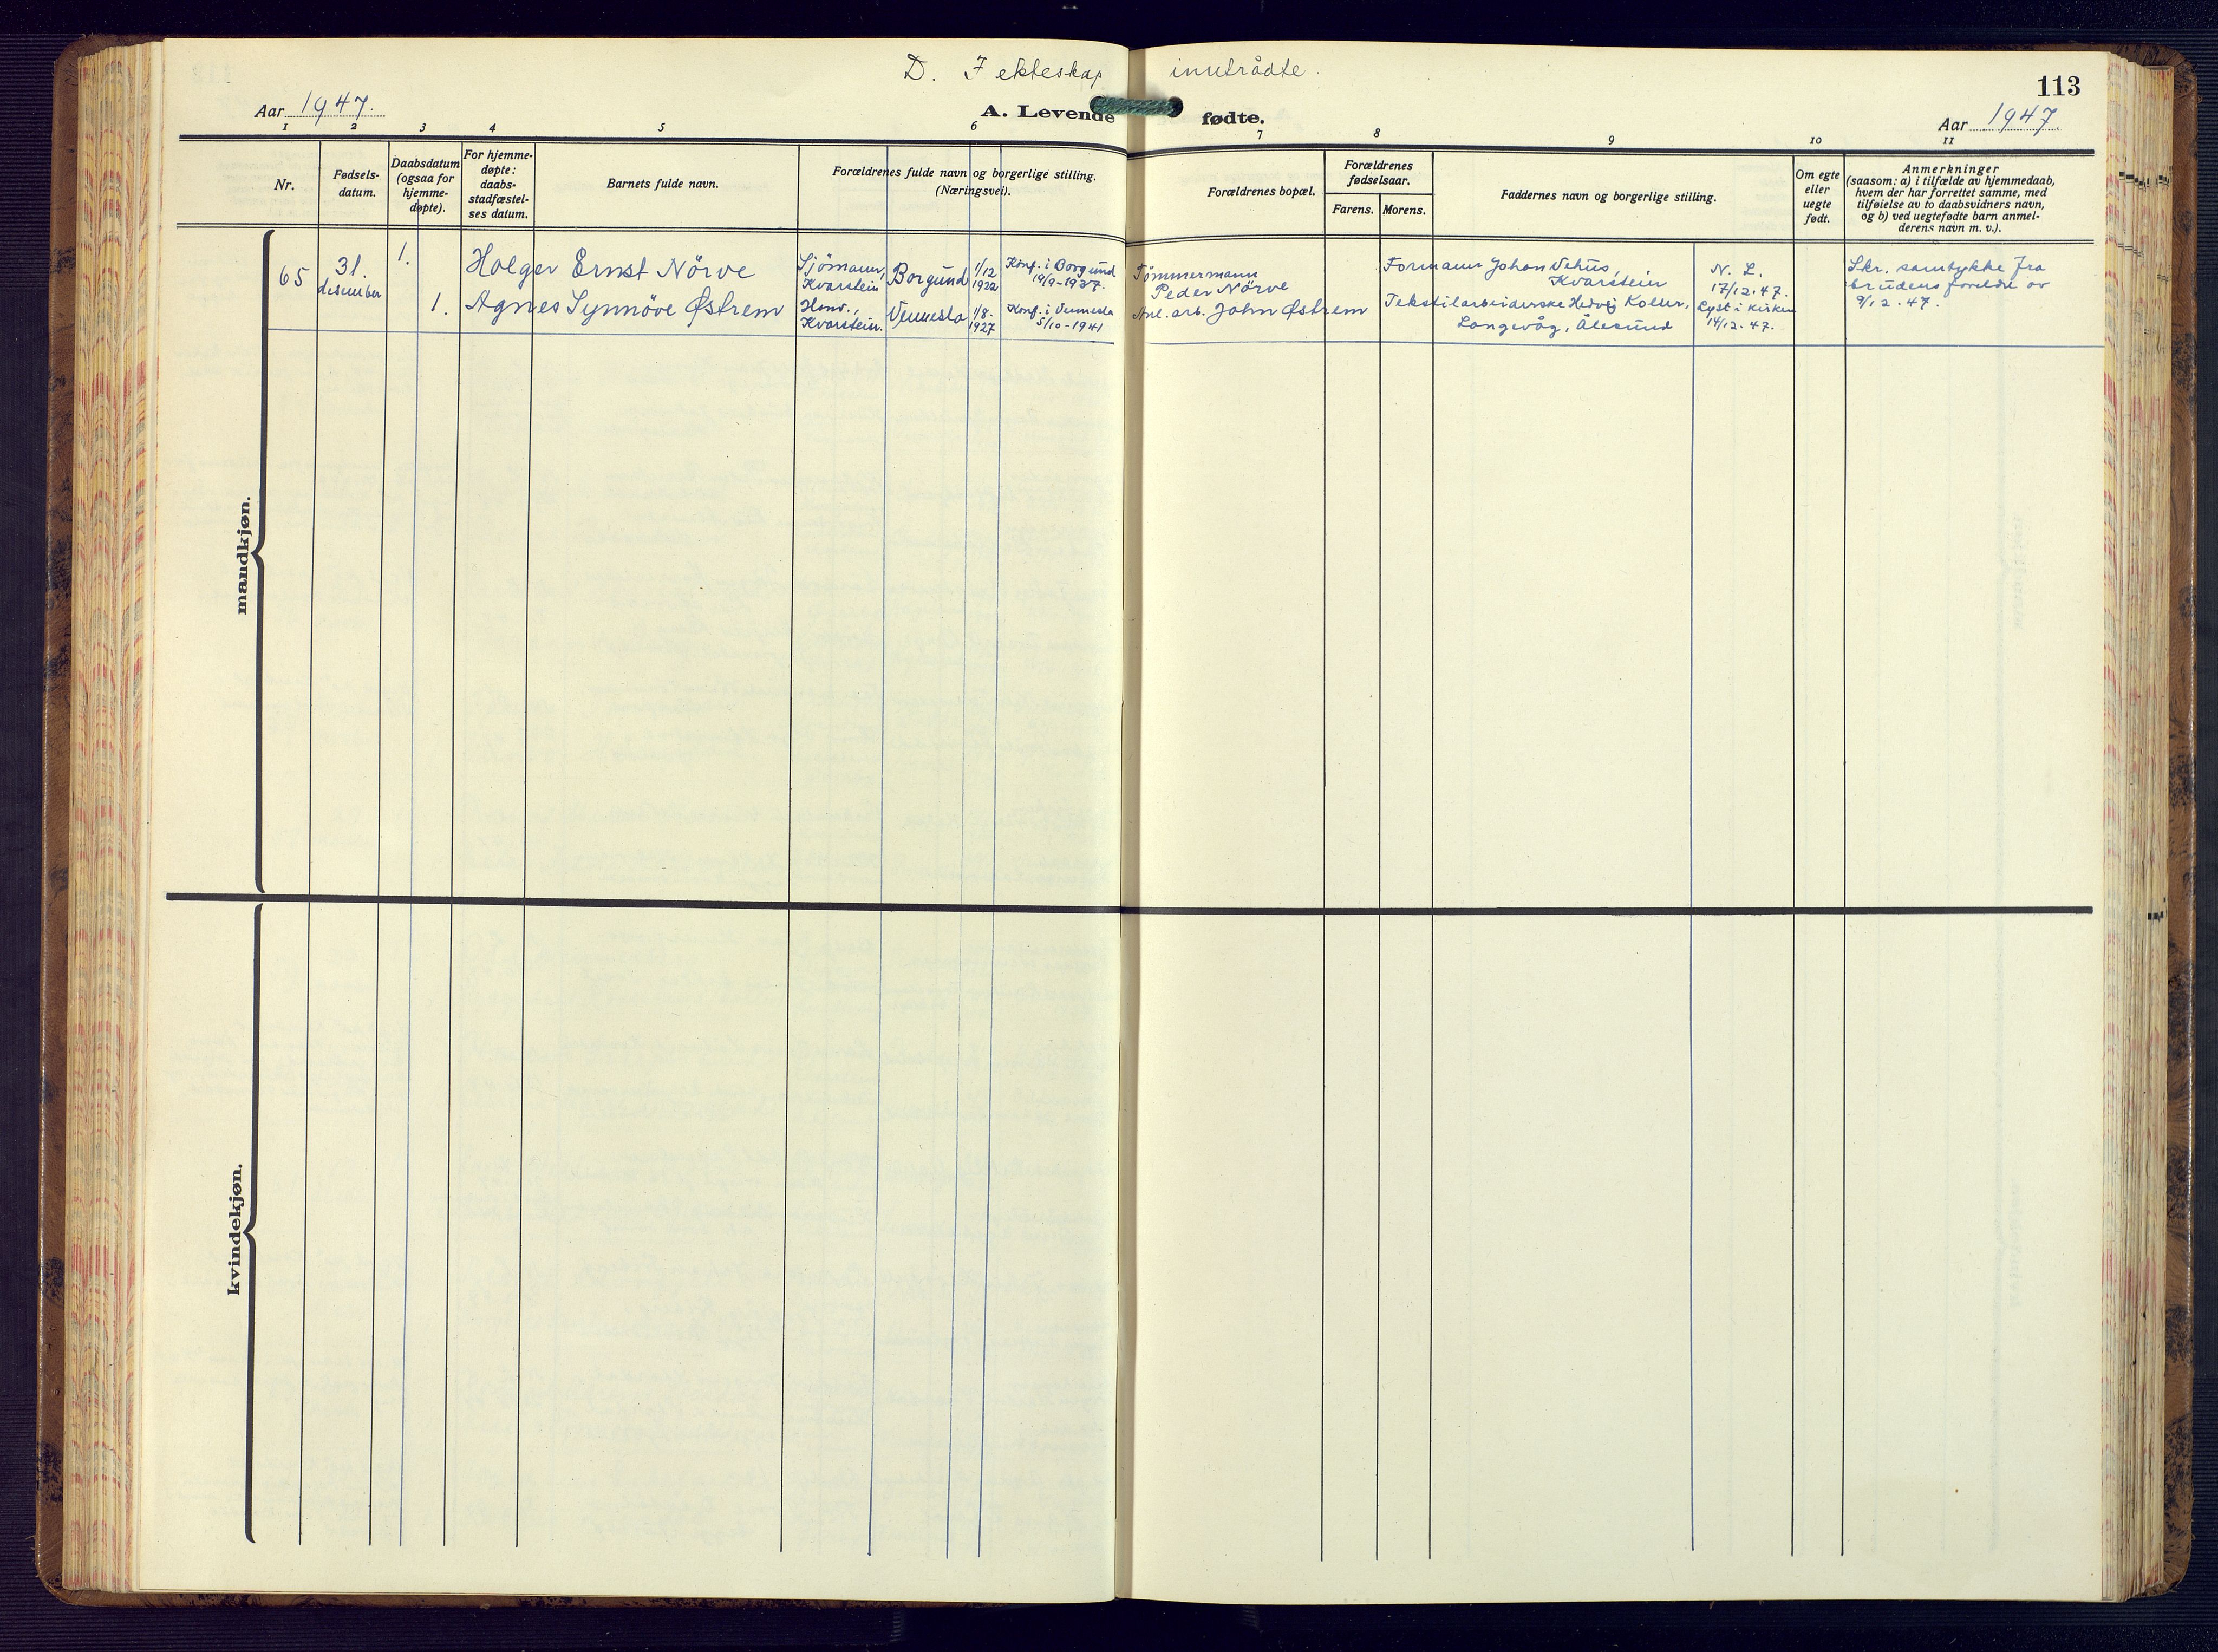 D. I ekteskap inntrådte.
113
Aar 1947.
A. Levende fødte.
Aar 1947.
1 2 3 4 5 6 7 8 9 10 11
Nr.
Fødsels-
datum.
Daabsdatum
(ogsaa for
hjemme-
døpte).
For hjemme-
døpte:
daabs-
stadfæstel-
ses datum.
Barnets fulde navn.
Forældrenes fulde navn og borgerlige stilling.
(Næringsvei).
Forældrenes bopæl.
Forældrenes
fødselsaar.
Farens. Morens.
Faddernes navn og borgerlige stilling.
Om egte
eller
uegte
født.
Anmerkninger
(saasom: a) i tilfælde av hjemmedaab,
hvem der har forrettet samme, med
tilføielse av to daabsvidners navn,
og b) ved uegtefødte barn anmel-
derens navn m. v.).
mandkjøn.
65
31.
desember
1.
Holger Ernst Nörve
Sjömann,
Kvarstein
Borgund
1/12
1922
Konf. i Borgund
19/9-1937.
Tömmermann
Peder Nörve
Formann Johan Vehus,
Kvarstein
N. L.
17/12.47.
Skr. samtykke fra
brudens foreldre av
9/12.47.
1.
Agnes Synnöve Østrem
Kvarstein.
Vennesla
1/8-
1927
Konf. i Vennesla
5/10-1941
Anl. arb. John Østrem
Tekstilarbeiderske Hedvig
Langevåg, Ålesund
Lyst i kirken
14/12.47.
kvindekjøn.